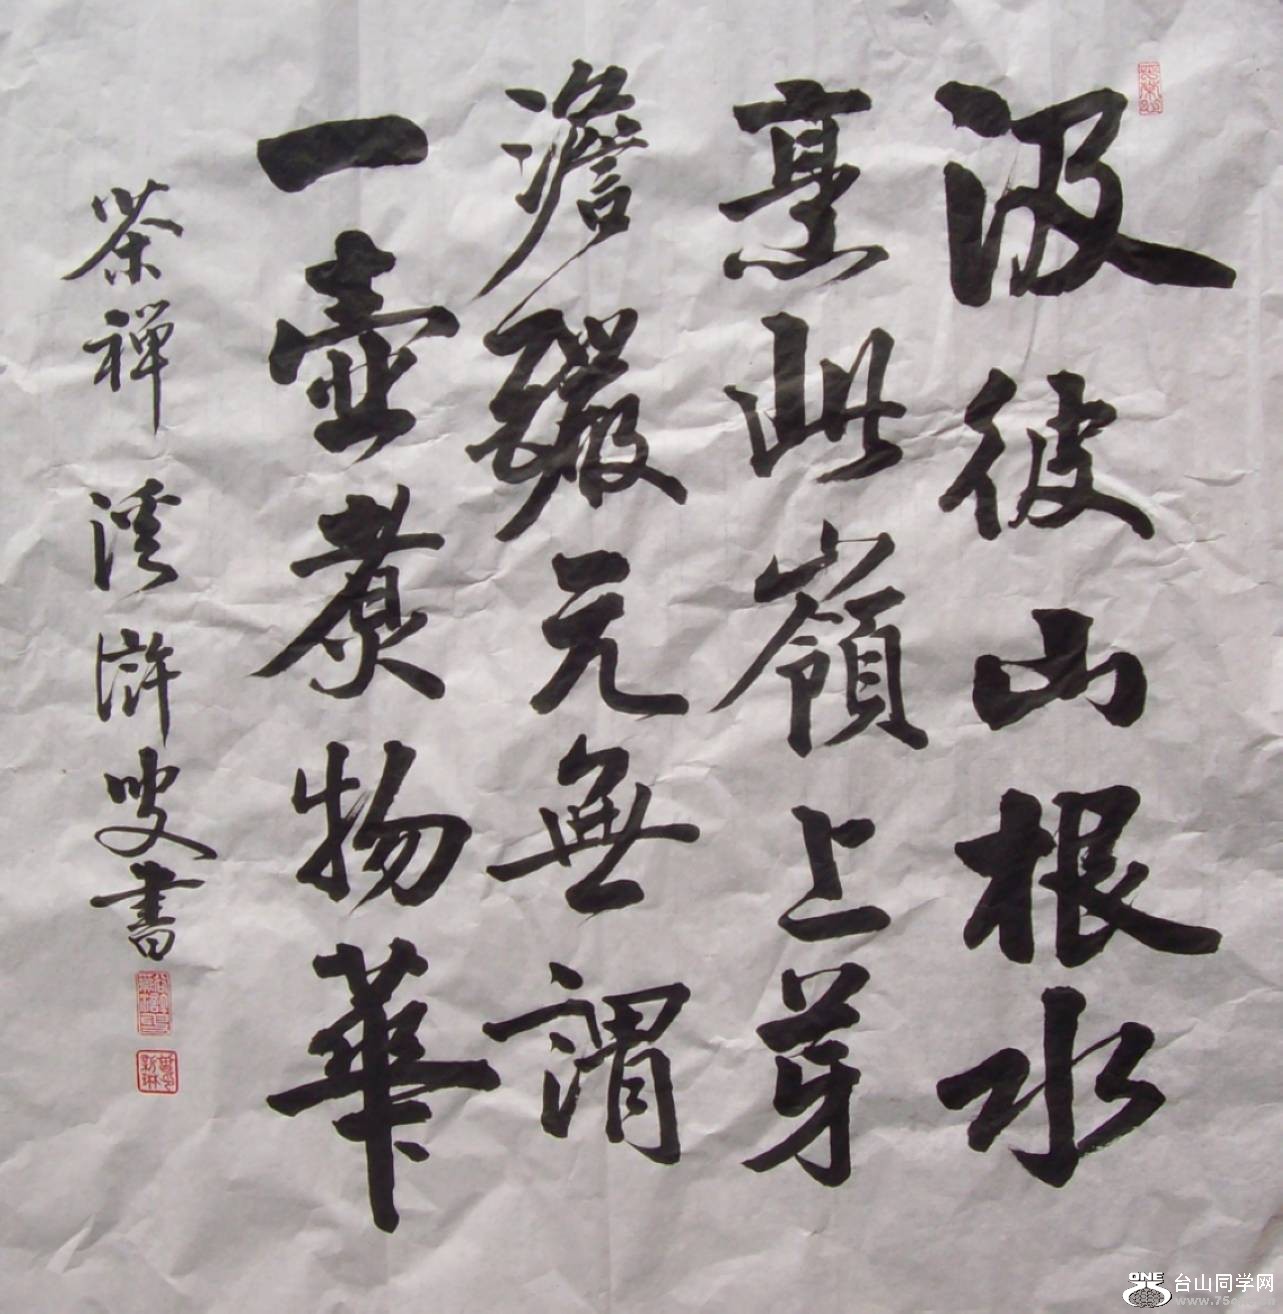 汲彼山根水
烹此嶺上芽
澹釅元無謂
一壺煮物華
茶禪 溪滸叟書
ONE 台山同学网